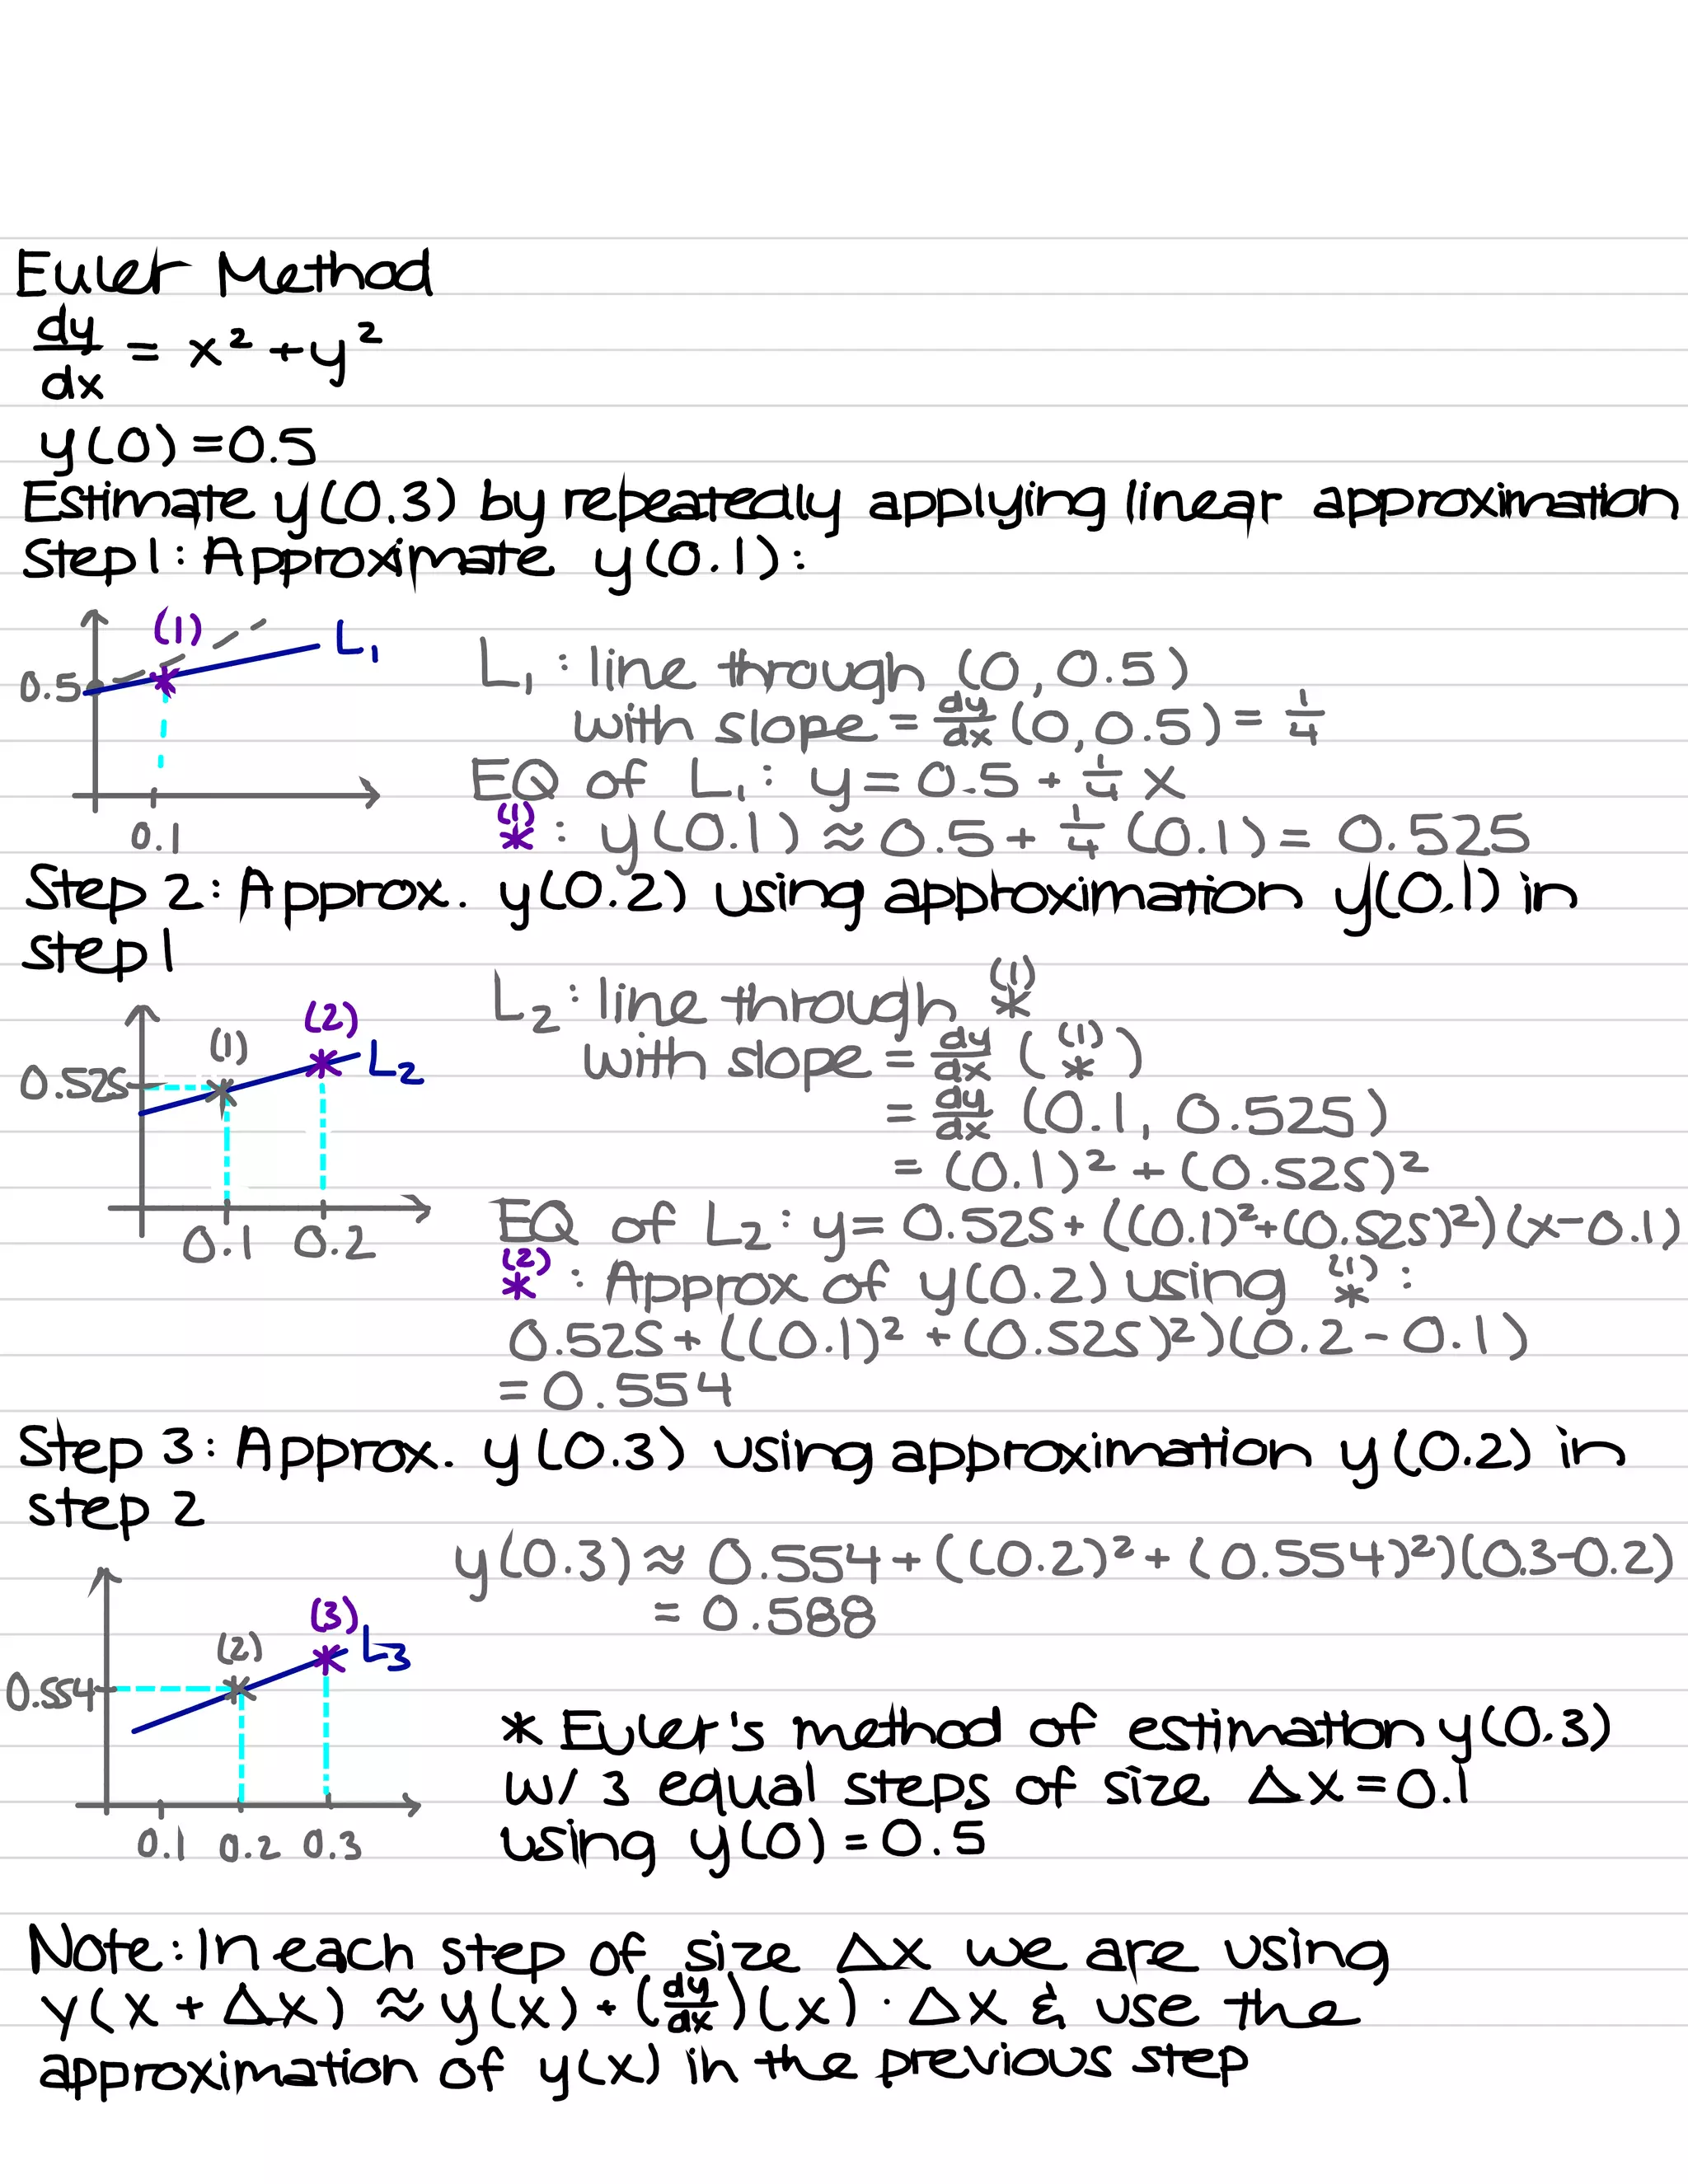 Euler Method
dy/dx = x² + y²
y(0) = 0.5
Estimate y(0.3) by repeatedly applying linear approximation
Step 1: Approximate y(0.1):
(1)
L₁
0.5
0.1
L₁: line through (0, 0.5)
with slope = dy/dx (0, 0.5) = 1/4
EQ of L₁: y = 0.5 + 1/4 x
(1)
*: y(0.1) ≈ 0.5 + 1/4 (0.1) = 0.525
Step 2: Approx. y(0.2) using approximation y(0.1) in
step 1
(2)
(1)
L₂
0.525
0.1 0.2
L₂: line through (1)*
with slope = dy/dx ((1)*)
= dy/dx (0.1, 0.525)
= (0.1)² + (0.525)²
EQ of L₂: y = 0.525 + ((0.1)² + (0.525)²)(x - 0.1)
(2)
*: Approx of y(0.2) using (1)*:
0.525 + ((0.1)² + (0.525)²)(0.2 - 0.1)
= 0.554
Step 3: Approx. y(0.3) using approximation y(0.2) in
step 2
y(0.3) ≈ 0.554 + ((0.2)² + (0.554)²)(0.3-0.2)
= 0.588
(3)
(2)
L₃
0.554
0.1 0.2 0.3
* Euler's method of estimation y(0.3)
w/ 3 equal steps of size Δx = 0.1
using y(0) = 0.5
Note: In each step of size Δx we are using
y(x + Δx) ≈ y(x) + (dy/dx)(x) · Δx & use the
approximation of y(x) in the previous step